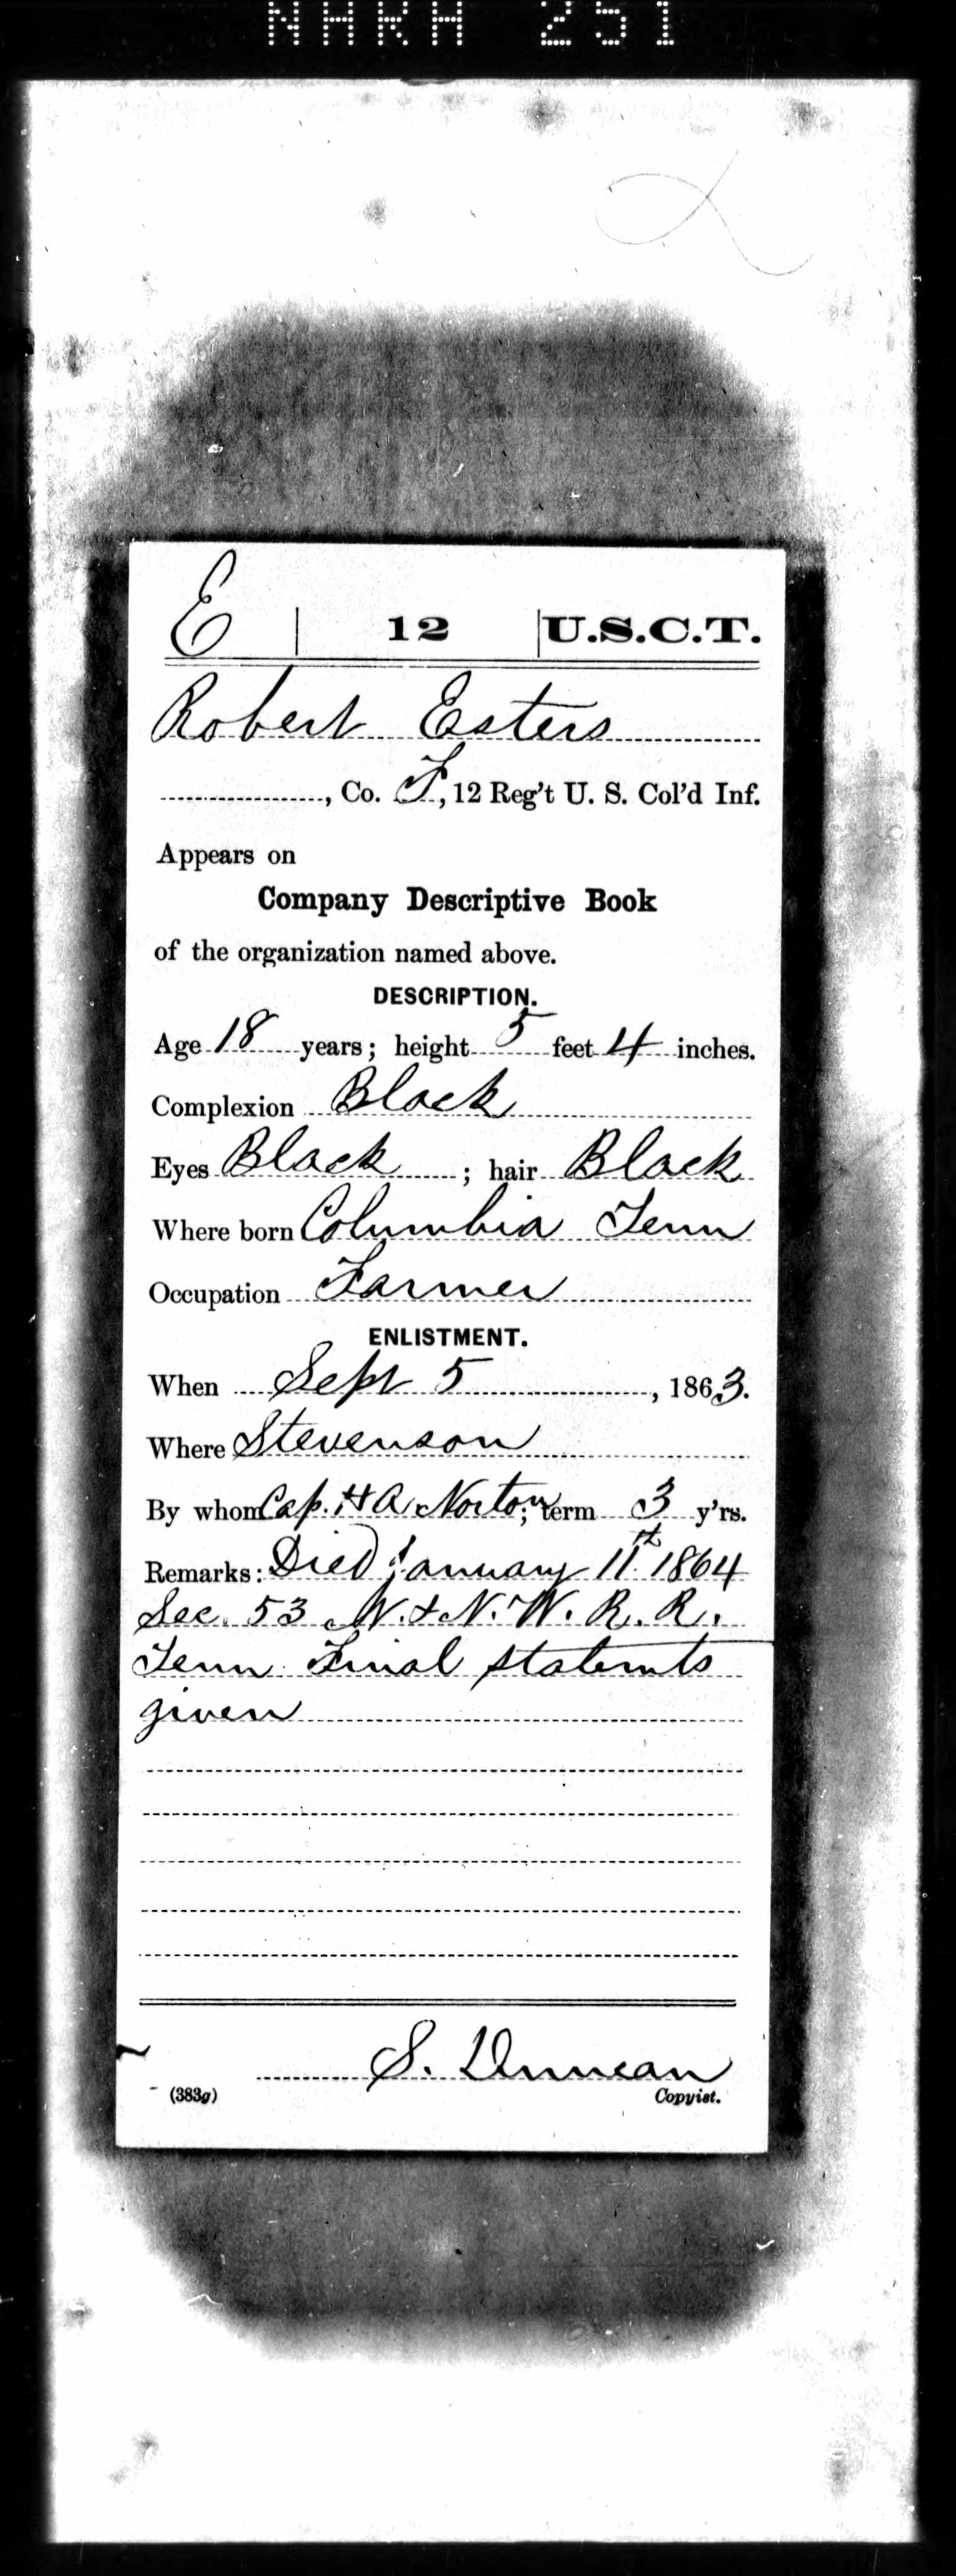 NARA 251
E | 12 | U.S.C.T.
Robert Esters
, Co. F, 12 Reg't U. S. Col'd Inf.
Appears on
Company Descriptive Book
of the organization named above.
DESCRIPTION.
Age 18 years; height 5 feet 4 inches.
Complexion Black
Eyes Black ; hair Black
Where born Columbia Tenn
Occupation Farmer
ENLISTMENT.
When Sept 5, 1863.
Where Stevenson
By whom Cap. H A Norton; term 3 y'rs.
Remarks: Died January 11th 1864
Sec. 53 N. & N. W. R. R.
Tenn Final statemts
given
S. Duncan
(383g) Copyist.